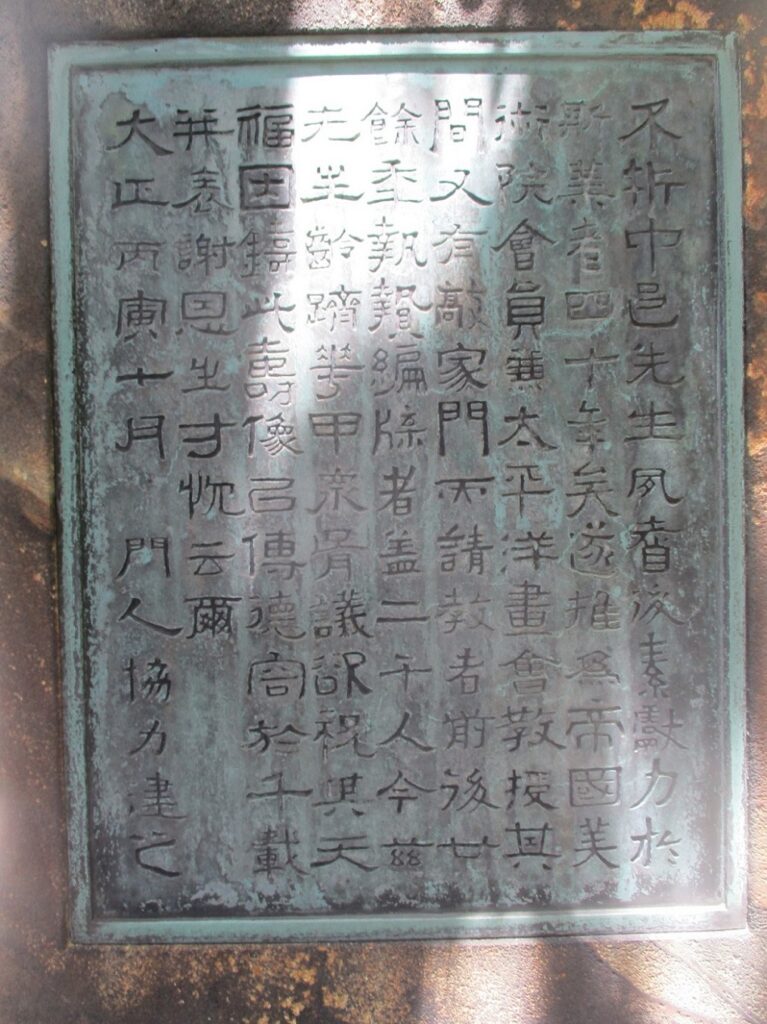 不折中邑先生夙耆後素獻力於
斯業者四十年矣遂推爲帝國美
術院會員兼太平洋畫會教授其
間又有敲家門而請教者前後廿
餘年執贄編牒者盖二千人今茲
先生齡躋華甲衆胥議欲祝其天
福因鑄此壽像以傳德容於千載
并表謝恩之寸忱云爾
大正丙寅十月 門人協力建之